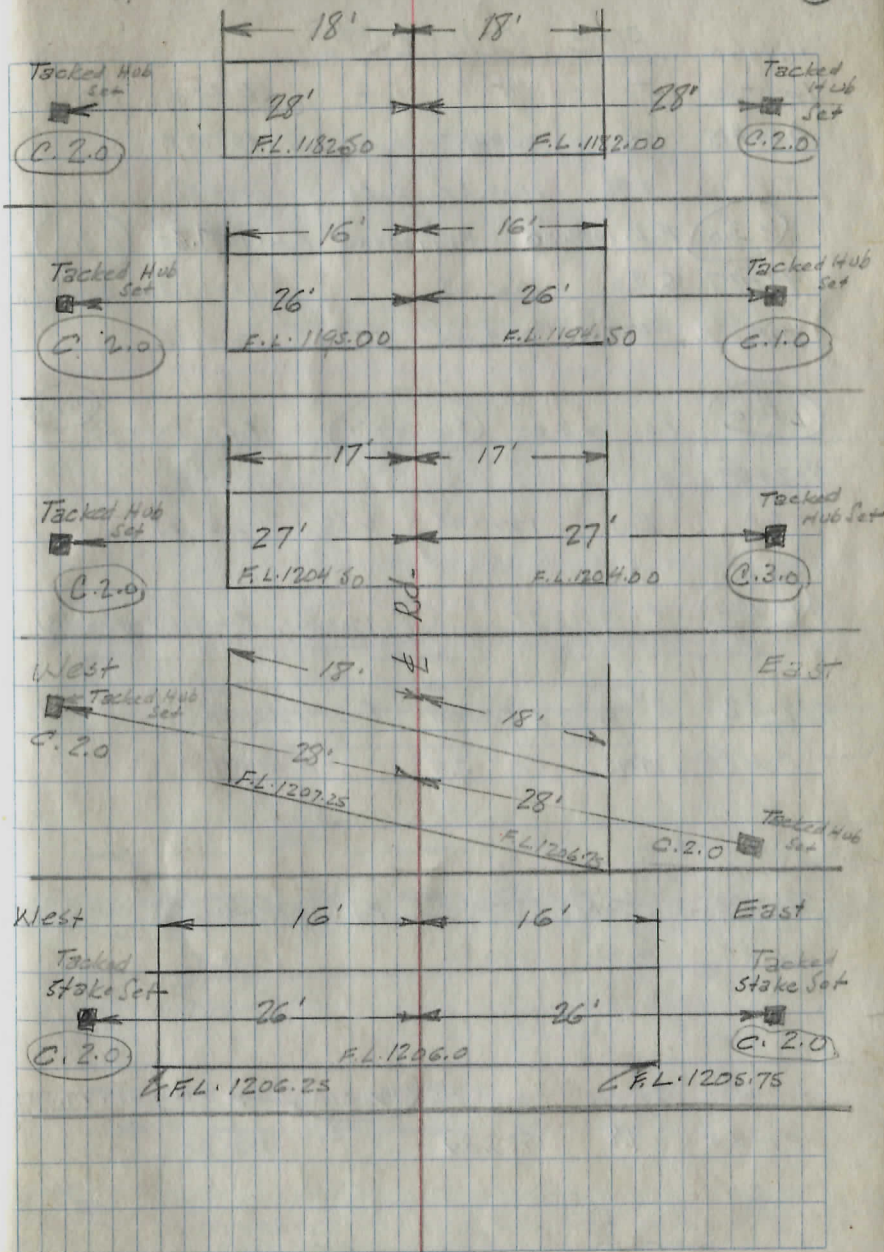 18' 18'
Tacked Hub Set 28' 28' Tacked Hub Set
C.2.0 F.L.1182.50 F.L.1182.00 C.2.0
16' 16'
Tacked Hub Set 26' 26' Tacked Hub Set
C 2.0 F.L.1195.00 F.L.1194.50 C.1.0
17' 17'
Tacked Hub Set 27' 27' Tacked Hub Set
C.2.0 F.L.1204.50 F.L.1204.00 C.3.0
℄ Rd.
West 18' East
Tacked Hub Set 18'
C.2.0 28'
F.L.1207.25 28' Tacked Hub Set
F.L.1206.75 C.2.0
West 16' 16' East
Tacked Stake Set 26' 26' Tacked Stake Set
C.2.0 F.L.1206.0 C.2.0
F.L.1206.25 F.L.1205.75